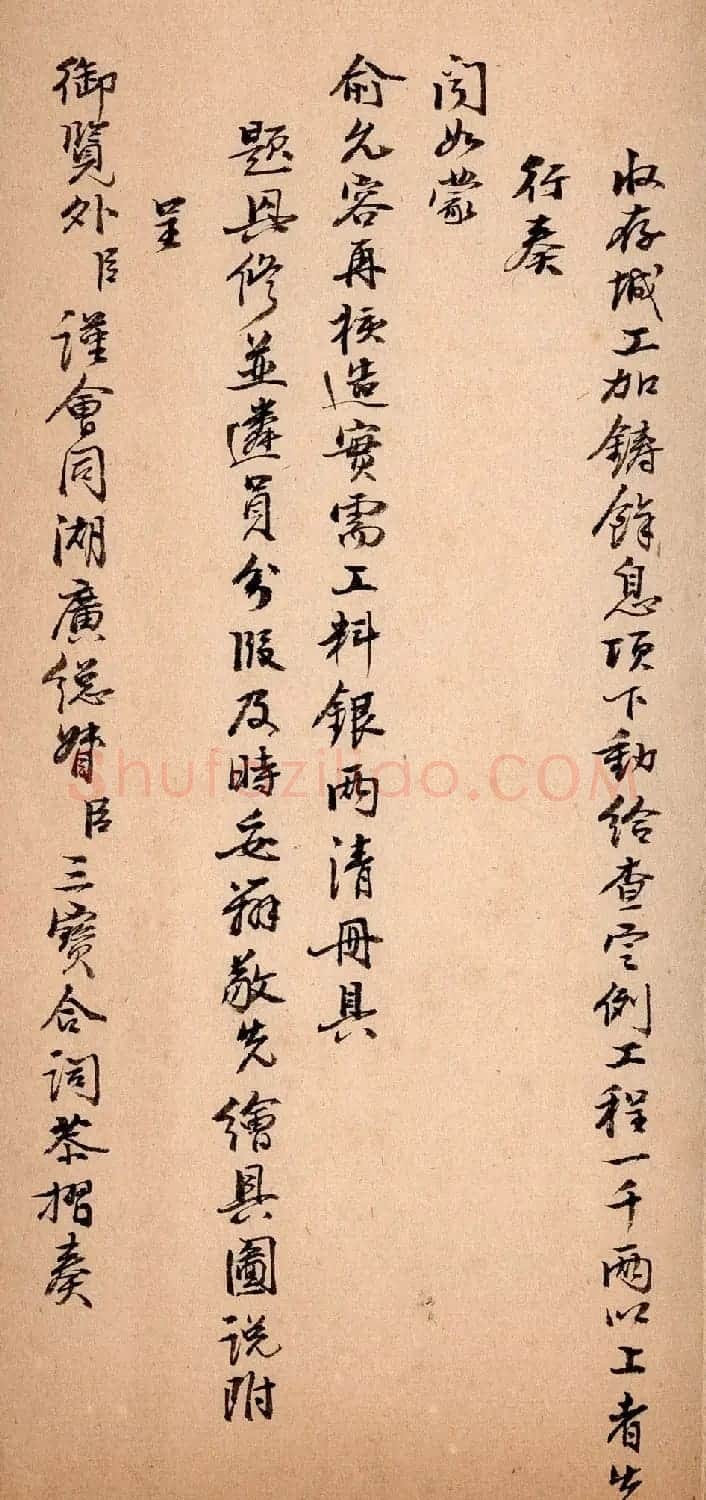 收存城工加鑄餘息項下動給查定例工程一千兩以上者先
行奏
聞如蒙
俞允容再核造實需工料銀兩清冊具
題興修並遴員分段及時妥辦敬先繪具圖說附
呈
御覽外臣謹會同湖廣總督臣三寶合詞恭摺奏
Shufaziliao.COM